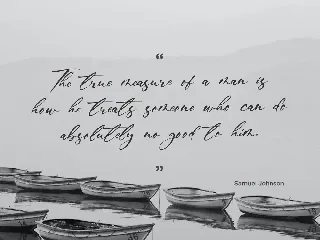 “
The true measure of a man is
how he treats someone who can do
absolutely no good to him.
”
Samuel Johnson